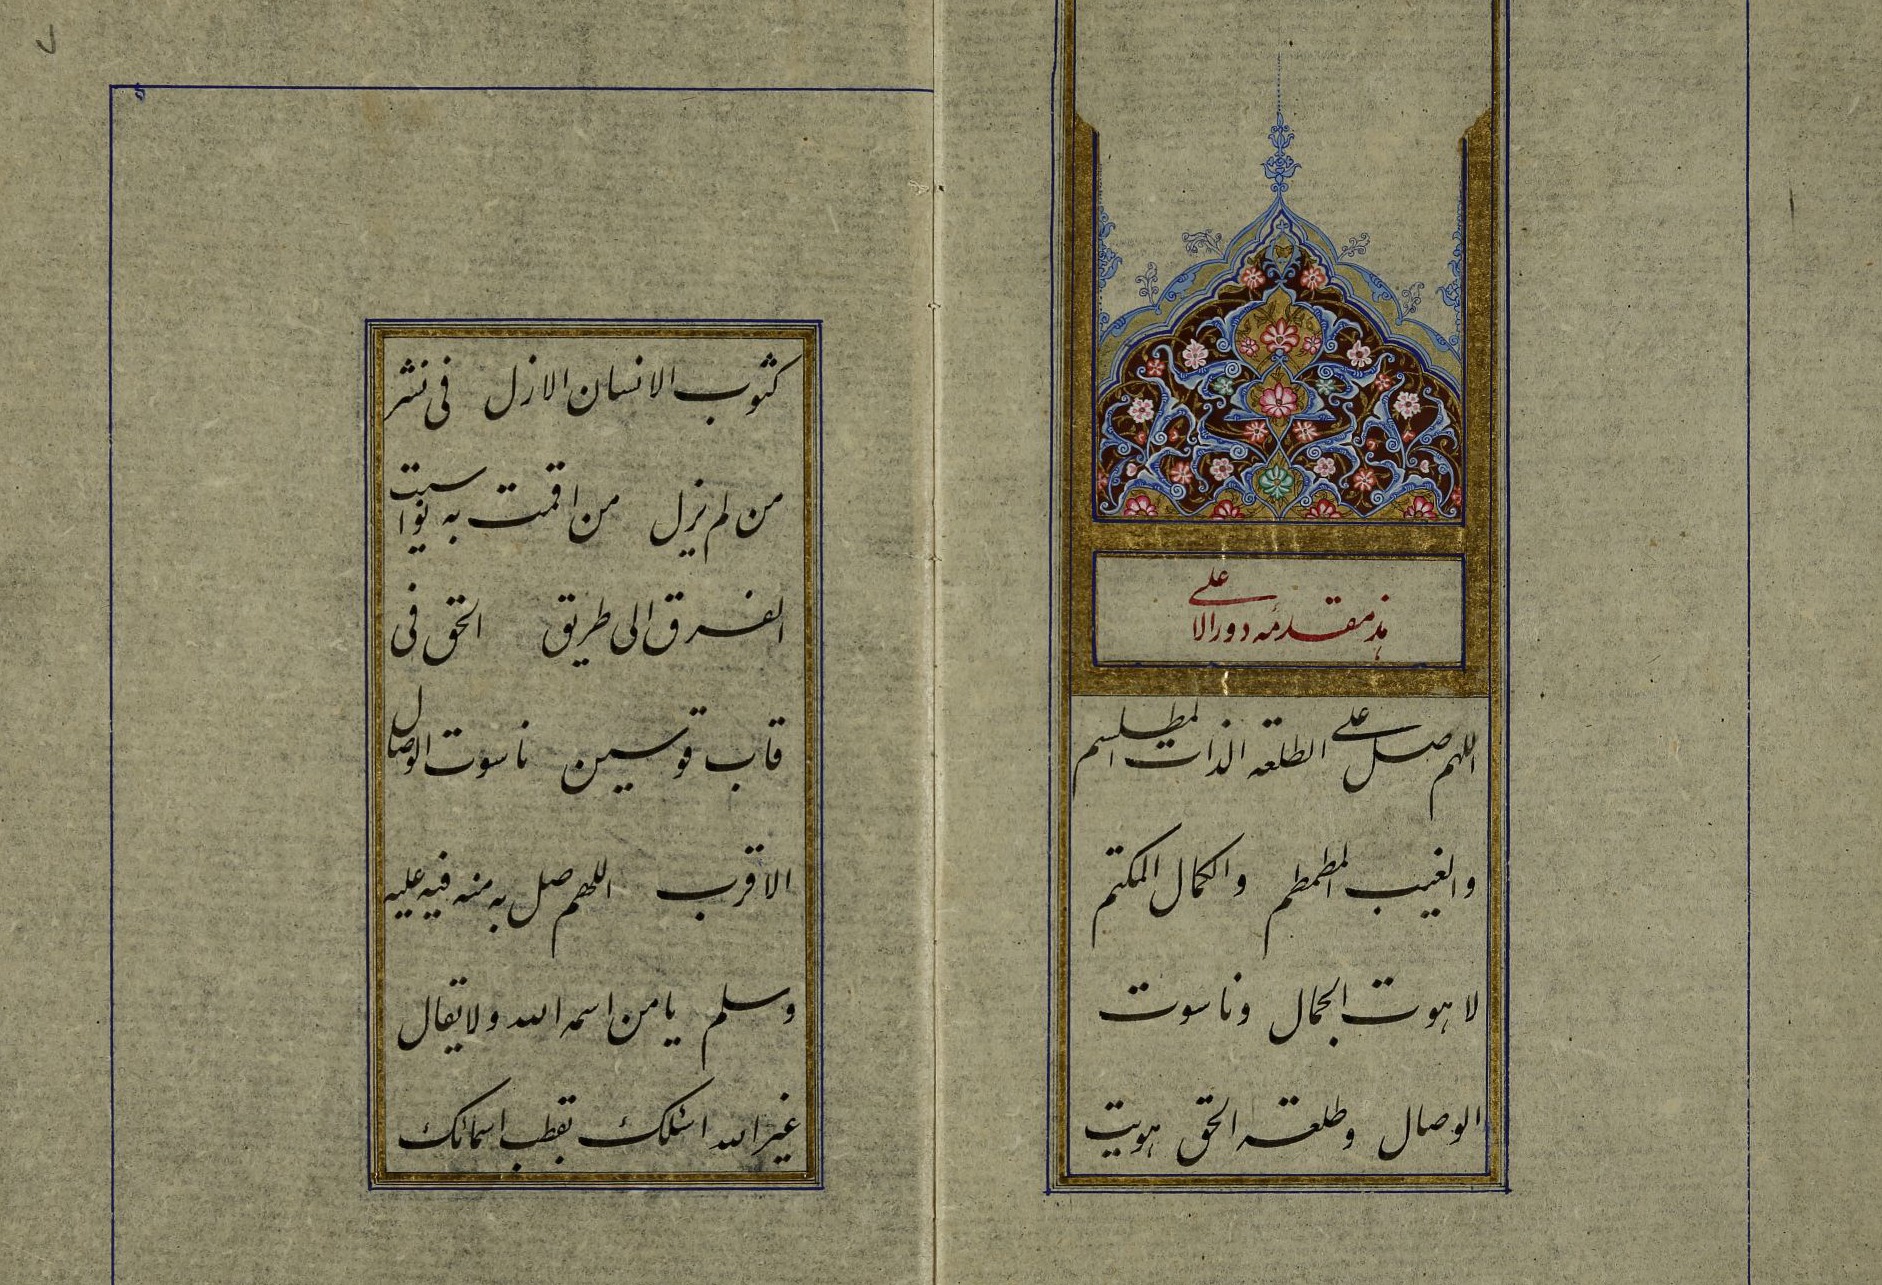 هذ مقدمٔه دور الاعلی
اللهم صل علی الطلعه الذات المطلسم
والغیب المطمطم والکمال المکتم
لاهوت الجمال وناسوت
الوصال وطلعة الحق هویت
کثوب الانسان الازل فی نشر
من لم یزل من اقمت به نواسیت
الفرق الی طریق الحق فی
قاب قوسین ناسوت الوصال
الاقرب اللهم صل به منه فیه علیه
وسلم یا من اسمه الله ولا یقال
غیر الله اسئلک بقطب اسمائک